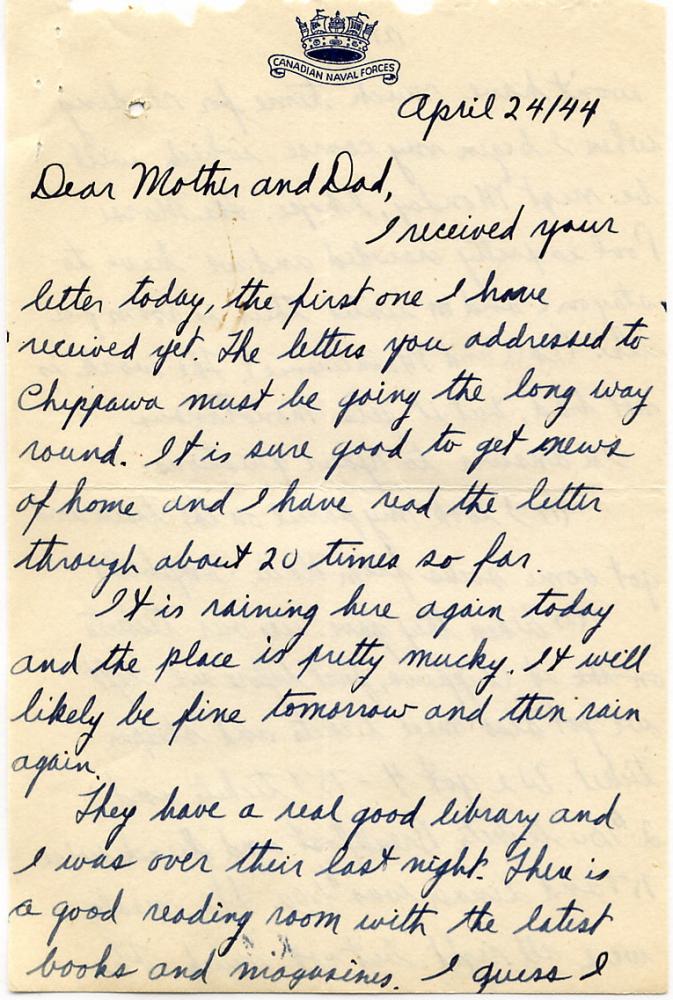 CANADIAN NAVAL FORCES
April 24/44
Dear Mother and Dad,
I received your
letter today, the first one I have
received yet. The letters you addressed to
Chippawa must be going the long way
round. It is sure good to get news
of home and I have read the letter
through about 20 times so far.
It is raining here again today
and the place is pretty mucky. It will
likely be fine tomorrow and then rain
again.
They have a real good library and
I was over their last night. There is
a good reading room with the latest
books and magasines. I guess I